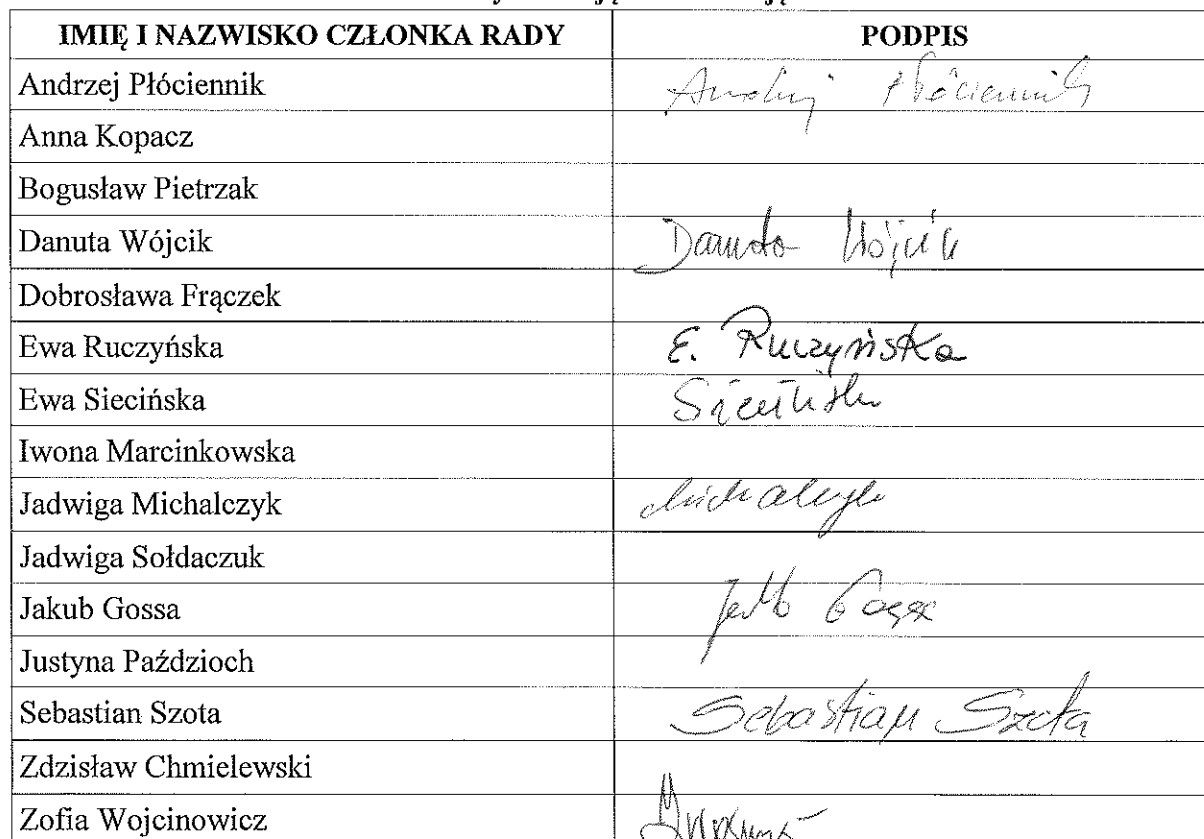 IMIĘ I NAZWISKO CZŁONKA RADY PODPIS
Andrzej Płóciennik Andrzej Płóciennik
Anna Kopacz
Bogusław Pietrzak
Danuta Wójcik Danuta Wójcik
Dobrosława Frączek
Ewa Ruczyńska E. Ruczyńska
Ewa Siecińska Siecińska
Iwona Marcinkowska
Jadwiga Michalczyk Michalczyk
Jadwiga Sołdaczuk
Jakub Gossa Jakub Gossa
Justyna Paździoch
Sebastian Szota Sebastian Szota
Zdzisław Chmielewski
Zofia Wojcinowicz